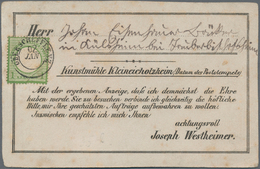 Herr Johan Eisenhauer
in Külsheim bei Tauberbischofsheim
Kunstmühle Kleineicholzheim (Datum des Poststempels)
Mit der ergebenen Anzeige, daß ich demnächst die Ehre
haben werde Sie zu besuchen verbinde ich gleichzeitig die höfliche
Bitte, mir Ihre geschätzten Aufträge aufbewahren zu wollen.
Inzwischen empfehle ich mich Ihnen
achtungsvoll
Joseph Westheimer.